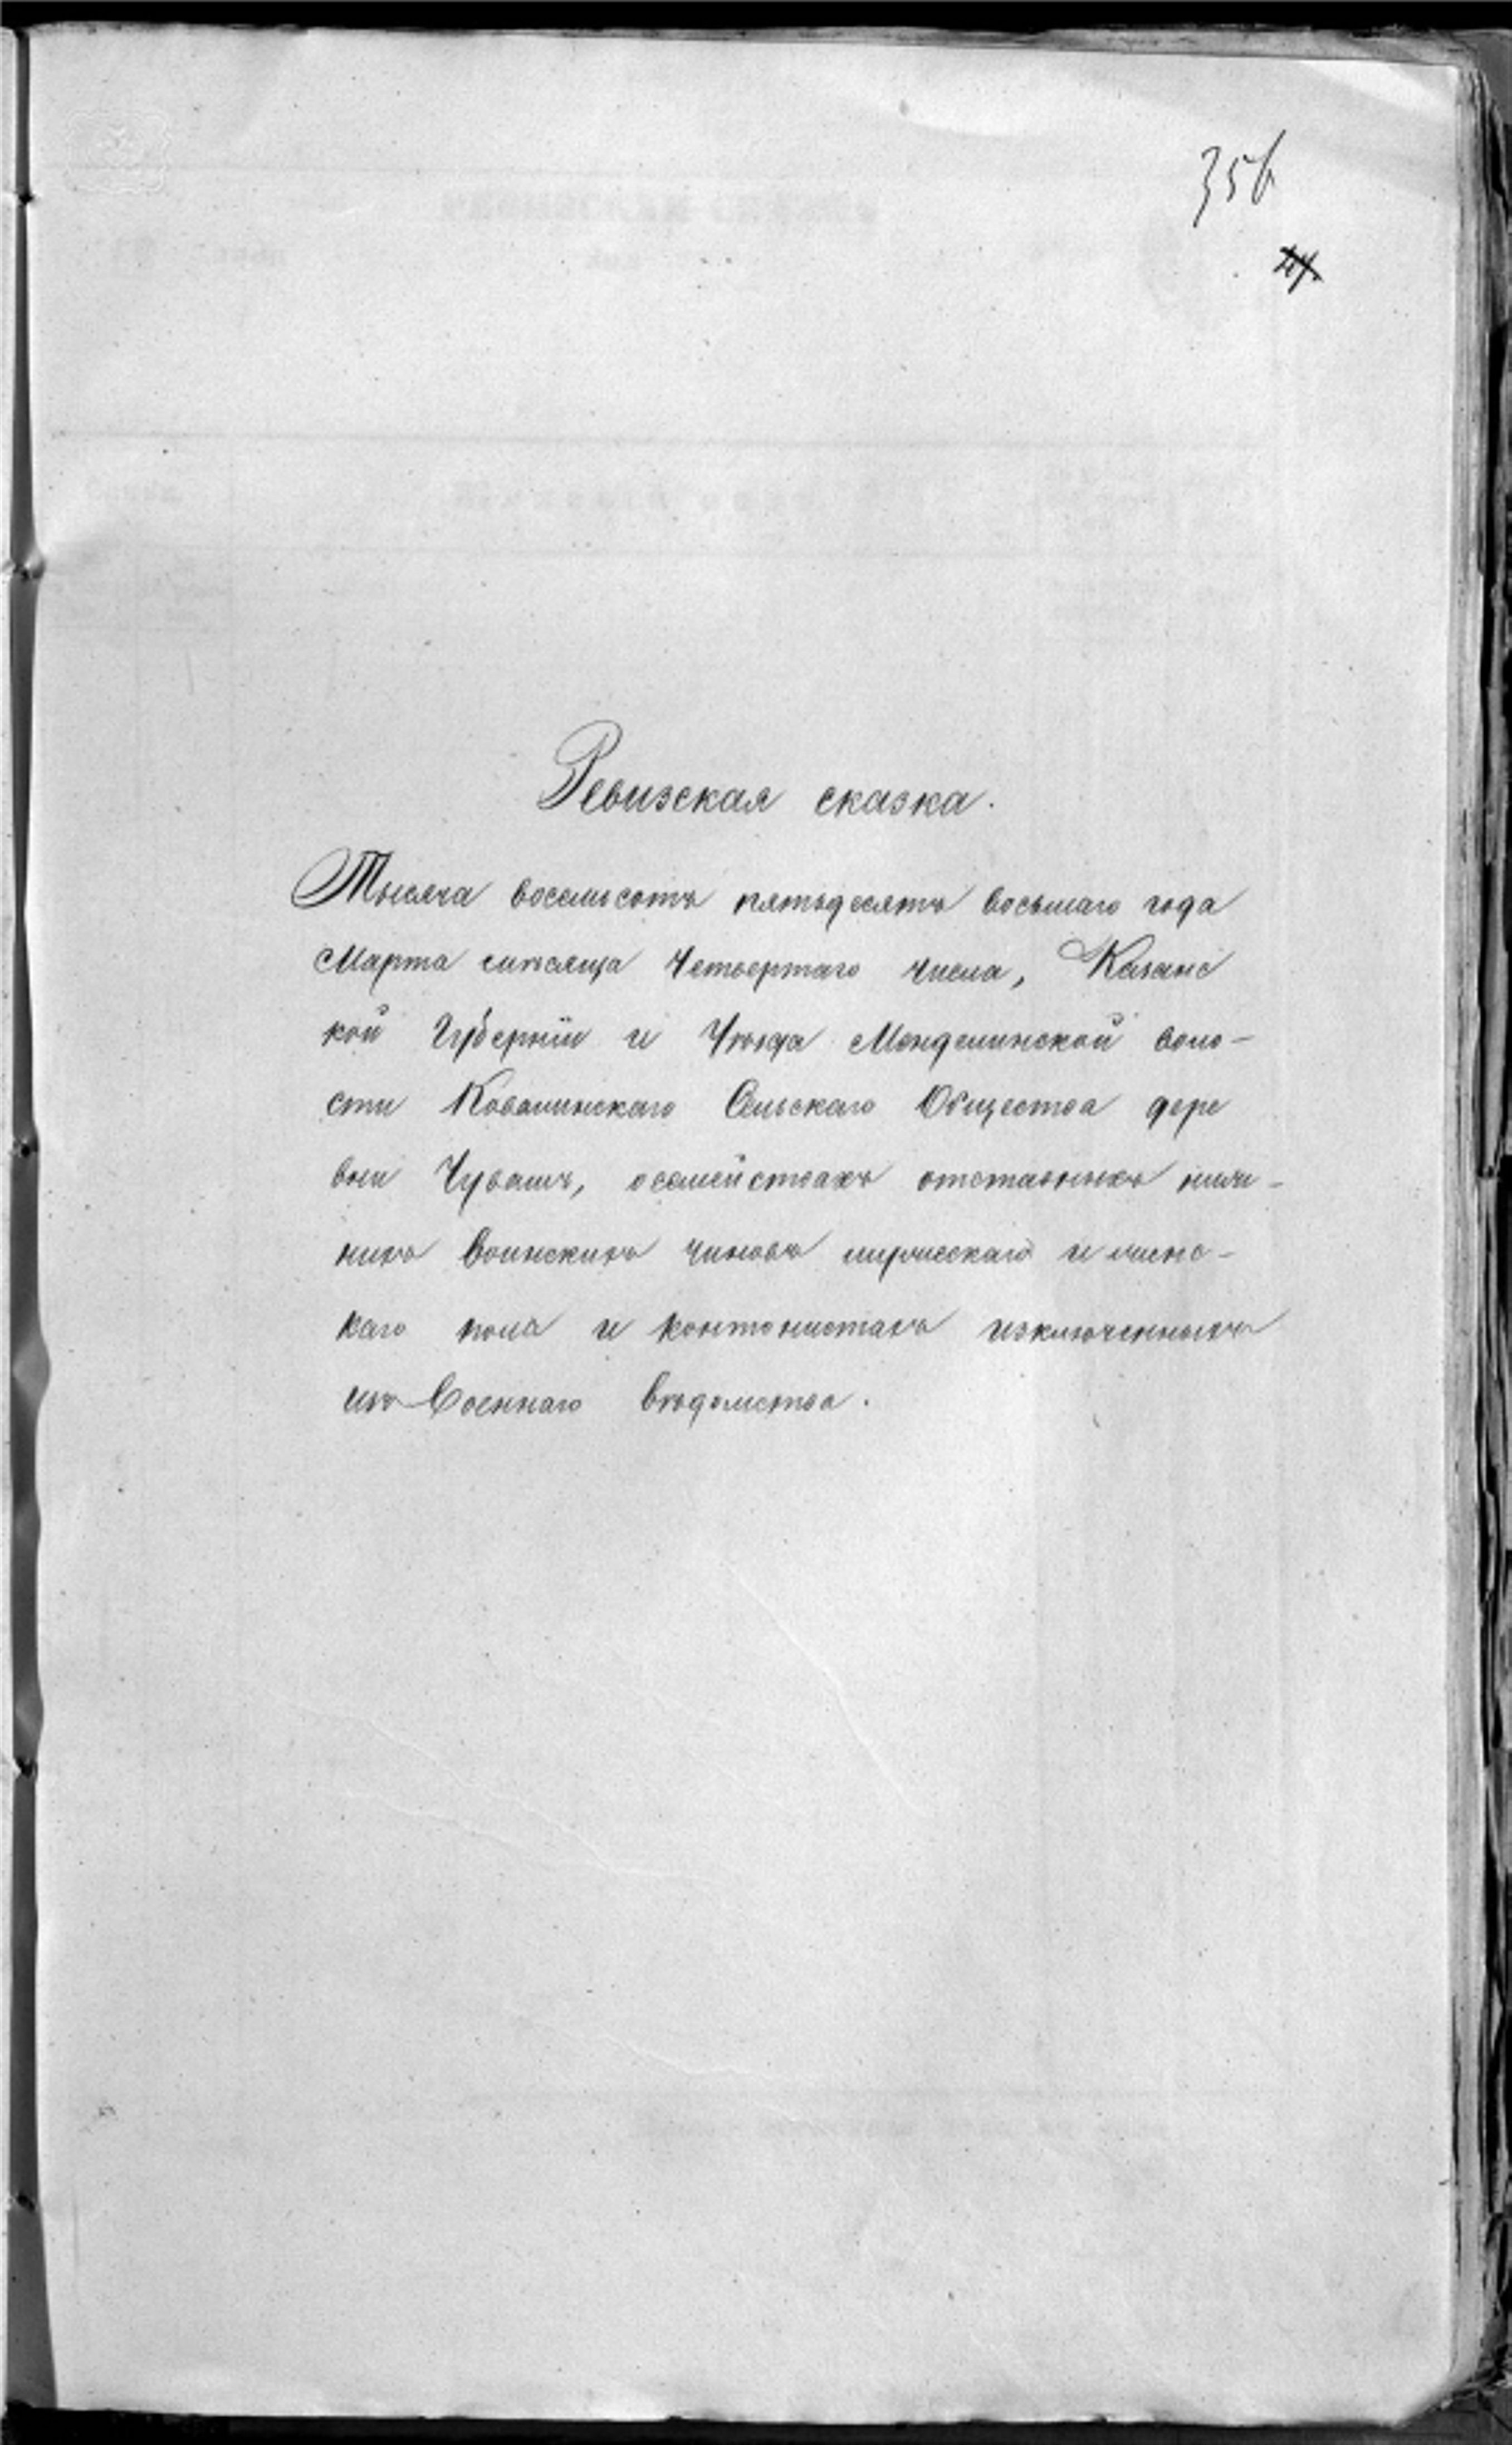 356
Ревизская сказка.
Тысяча восемьсотъ пятьдесятъ восьмаго года
Марта мѣсяца Четвертаго числа, Казанс
кой Губерніи и Уѣзда Мендѣлинской воло-
сти Ковалинскаго Сельскаго Общества дере
вни Чувашъ, осемействахъ отставныхъ ниж-
нихъ Воинскихъ чиновъ мужескаго и женс-
каго пола и контонистахъ изключенныхъ
изъ Военнаго вѣдомства.